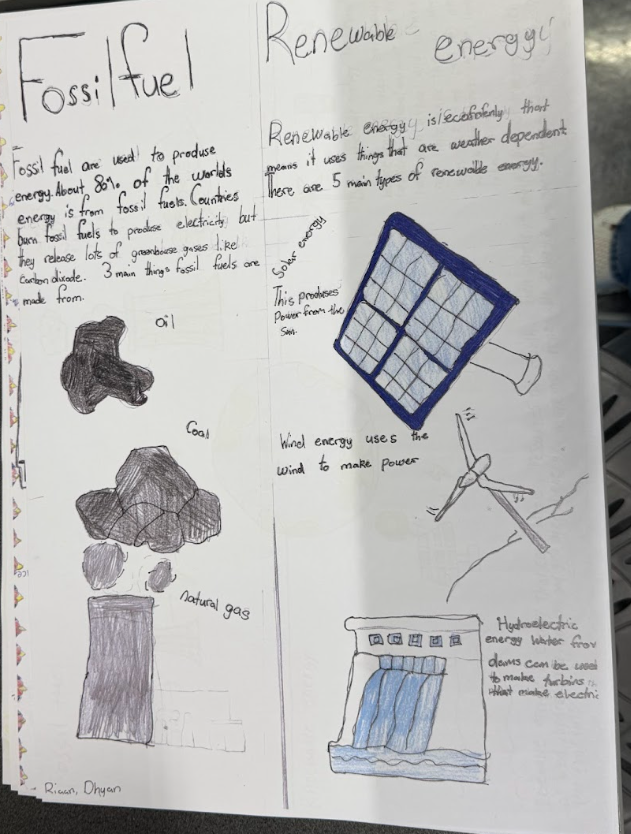 Fossil fuel
Fossil fuel are used to produse
energy. About 80% of the worlds
energy is from fossil fuels. Countries
burn fossil fuels to produse electricity but
they release lots of greenhouse gases like
carbon dixode. 3 main things fossil fuels are
made from.
Oil
Coal
natural gas
Dhyan
Renewable energy
Renewable energy is that
means it uses things that are weather dependent
There are 5 main types of renewable energy.
Solar energy
This produses
Power from the
Sun.
Wind energy uses the
wind to make power
Hydroelectric
energy water
dams can be used
to make
that electric